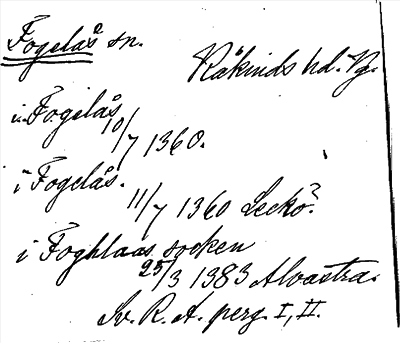 Fogelås sn.
Kåkinds hd. Vg.
i Fogilås
10/7 1360.
i Fogelås.
11/7 1360 Leckö?
i Foghlaas socken
25/3 1383 Alvastra.
Sv. R. A. perg. I, II.